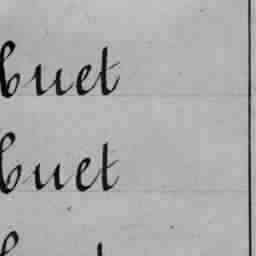 buet
buet